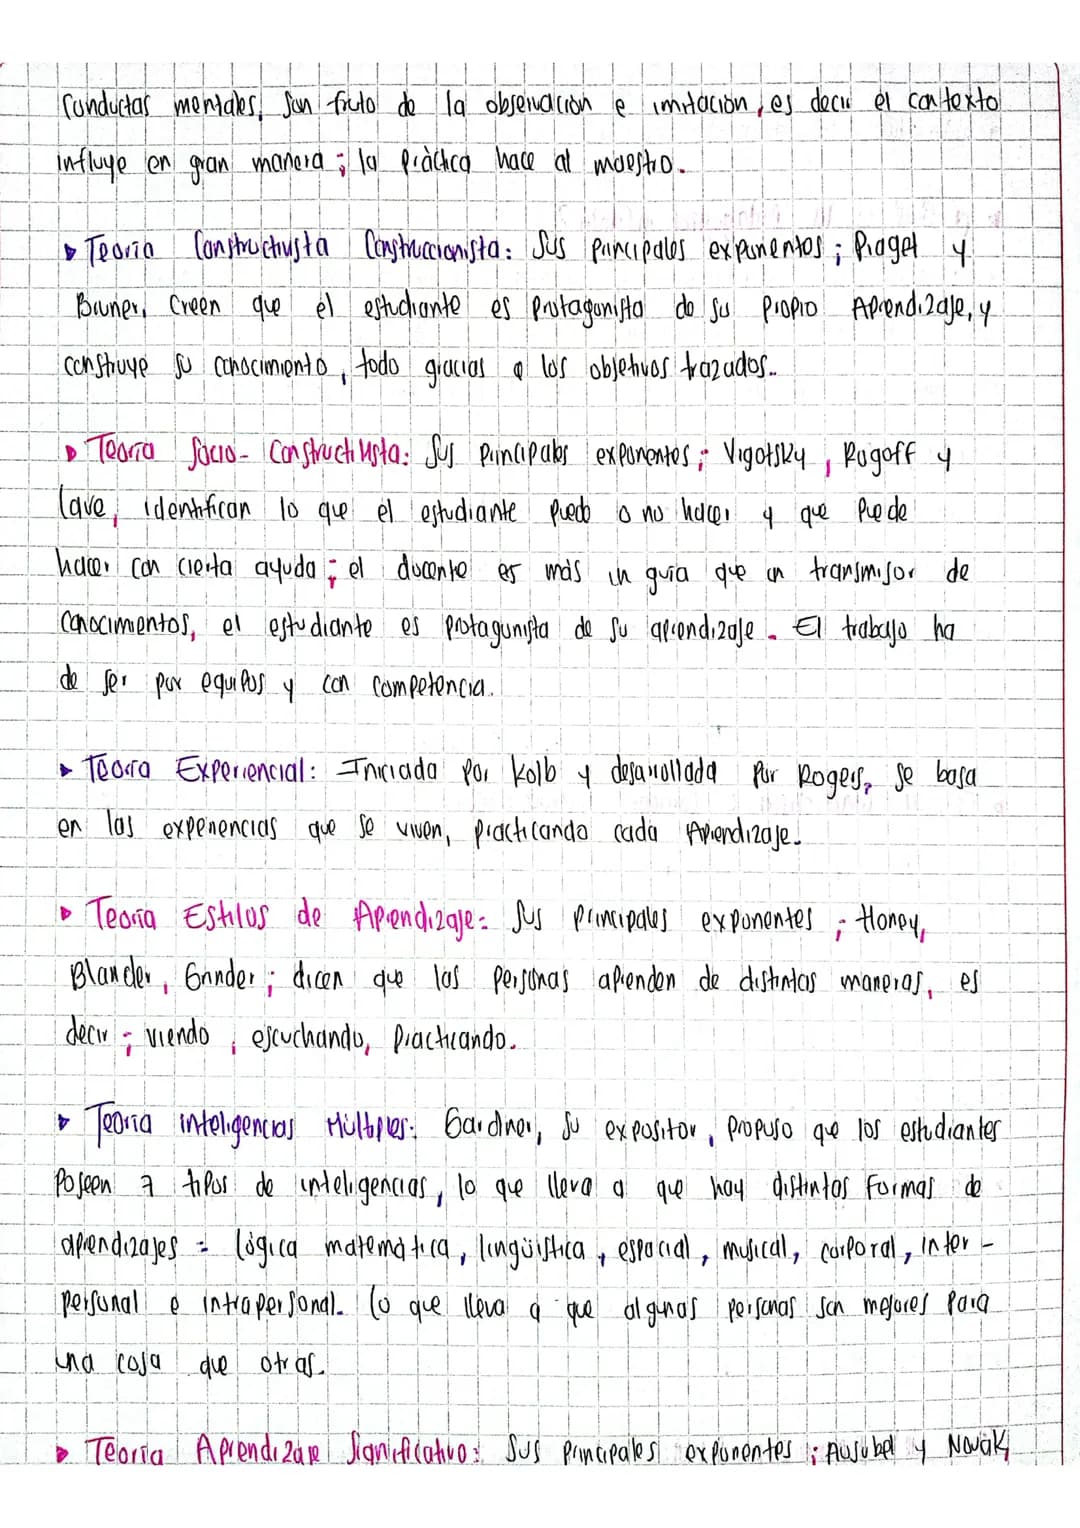 Conductas mentales, son fruto de la observación e imitación, es decir el contexto
influye en gran manera; la práctica hace al maestro.
▸ Teoría Constructivista Construccionista: Sus principales exponentes; Piaget y
Bruner, Creen que el estudiante es protagonista de su propio Aprendizaje, y
construye su conocimiento, todo gracias a los objetivos trazados..
▸ Teoría Socio-Constructivista: Sus principales exponentes; Vigotsky, Rogoff y
Lave, identifican lo que el estudiante puede o no hacer y que puede
hacer con cierta ayuda; el docente es más un guía que un transmisor de
conocimientos, el estudiante es protagonista de su aprendizaje. El trabajo ha
de ser por equipos y con competencia.
▸ Teoría Experiencial: Iniciada por Kolb y desarrollada por Rogers, se basa
en las experiencias que se viven, practicando cada Aprendizaje.
▸ Teoría Estilos de Aprendizaje: Sus principales exponentes; Honey,
Blander, Grinder; dicen que las personas aprenden de distintas maneras, es
decir; viendo, escuchando, practicando.
▸ Teoría inteligencias Múltiples: Gardner, su expositor, propuso que los estudiantes
poseen 7 tipos de inteligencias, lo que lleva a que hay distintos formas de
aprendizajes = lógica matemática, lingüística, espacial, musical, corporal, inter-
personal e intrapersonal. Lo que lleva a que algunas personas son mejores para
una cosa que otras.
▸ Teoría Aprendizaje Significativo: Sus principales exponentes; Ausubel y Novak